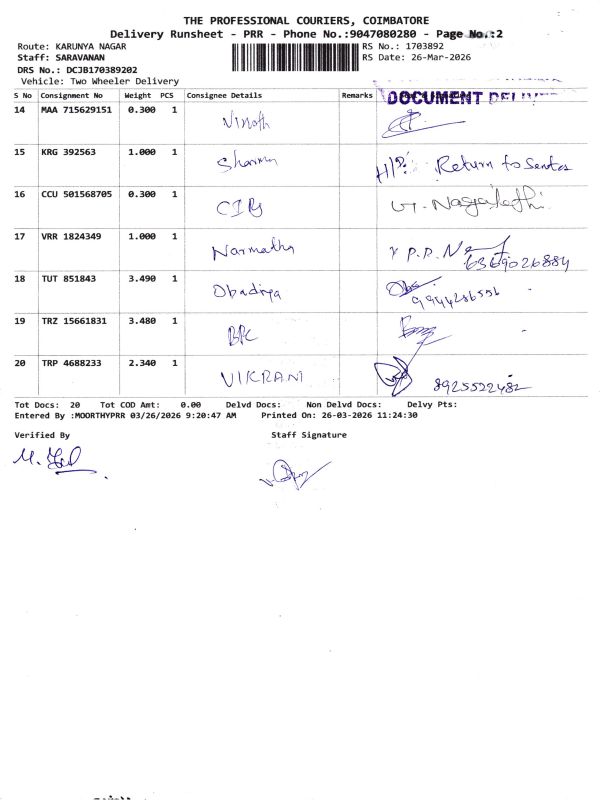 THE PROFESSIONAL COURIERS, COIMBATORE
Delivery Runsheet - PRR - Phone No.:9047080280 - Page No.:2
Route: KARUNYA NAGAR
RS No.: 1703892
Staff: SARAVANAN
RS Date: 26-Mar-2026
DRS No.: DCJB170389202
Vehicle: Two Wheeler Delivery
S No Consignment No Weight PCS Consignee Details Remarks
DOCUMENT
14 MAA 715629151 0.300 1 Vinoth
15 KRG 392563 1.000 1 Sharmi Return to Sentor
16 CCU 501568705 0.300 1
17 VRR 1824349 1.000 1 Narmatha
18 TUT 851843 3.490 1 Obadiya 9944286556
19 TRZ 15661831 3.480 1
20 TRP 4688233 2.340 1 VIKRANT 8925522482
Tot Docs: 20 Tot COD Amt: 0.00 Delvd Docs: Non Delvd Docs: Delvy Pts:
Entered By :MOORTHYPRR 03/26/2026 9:20:47 AM Printed On: 26-03-2026 11:24:30
Verified By Staff Signature